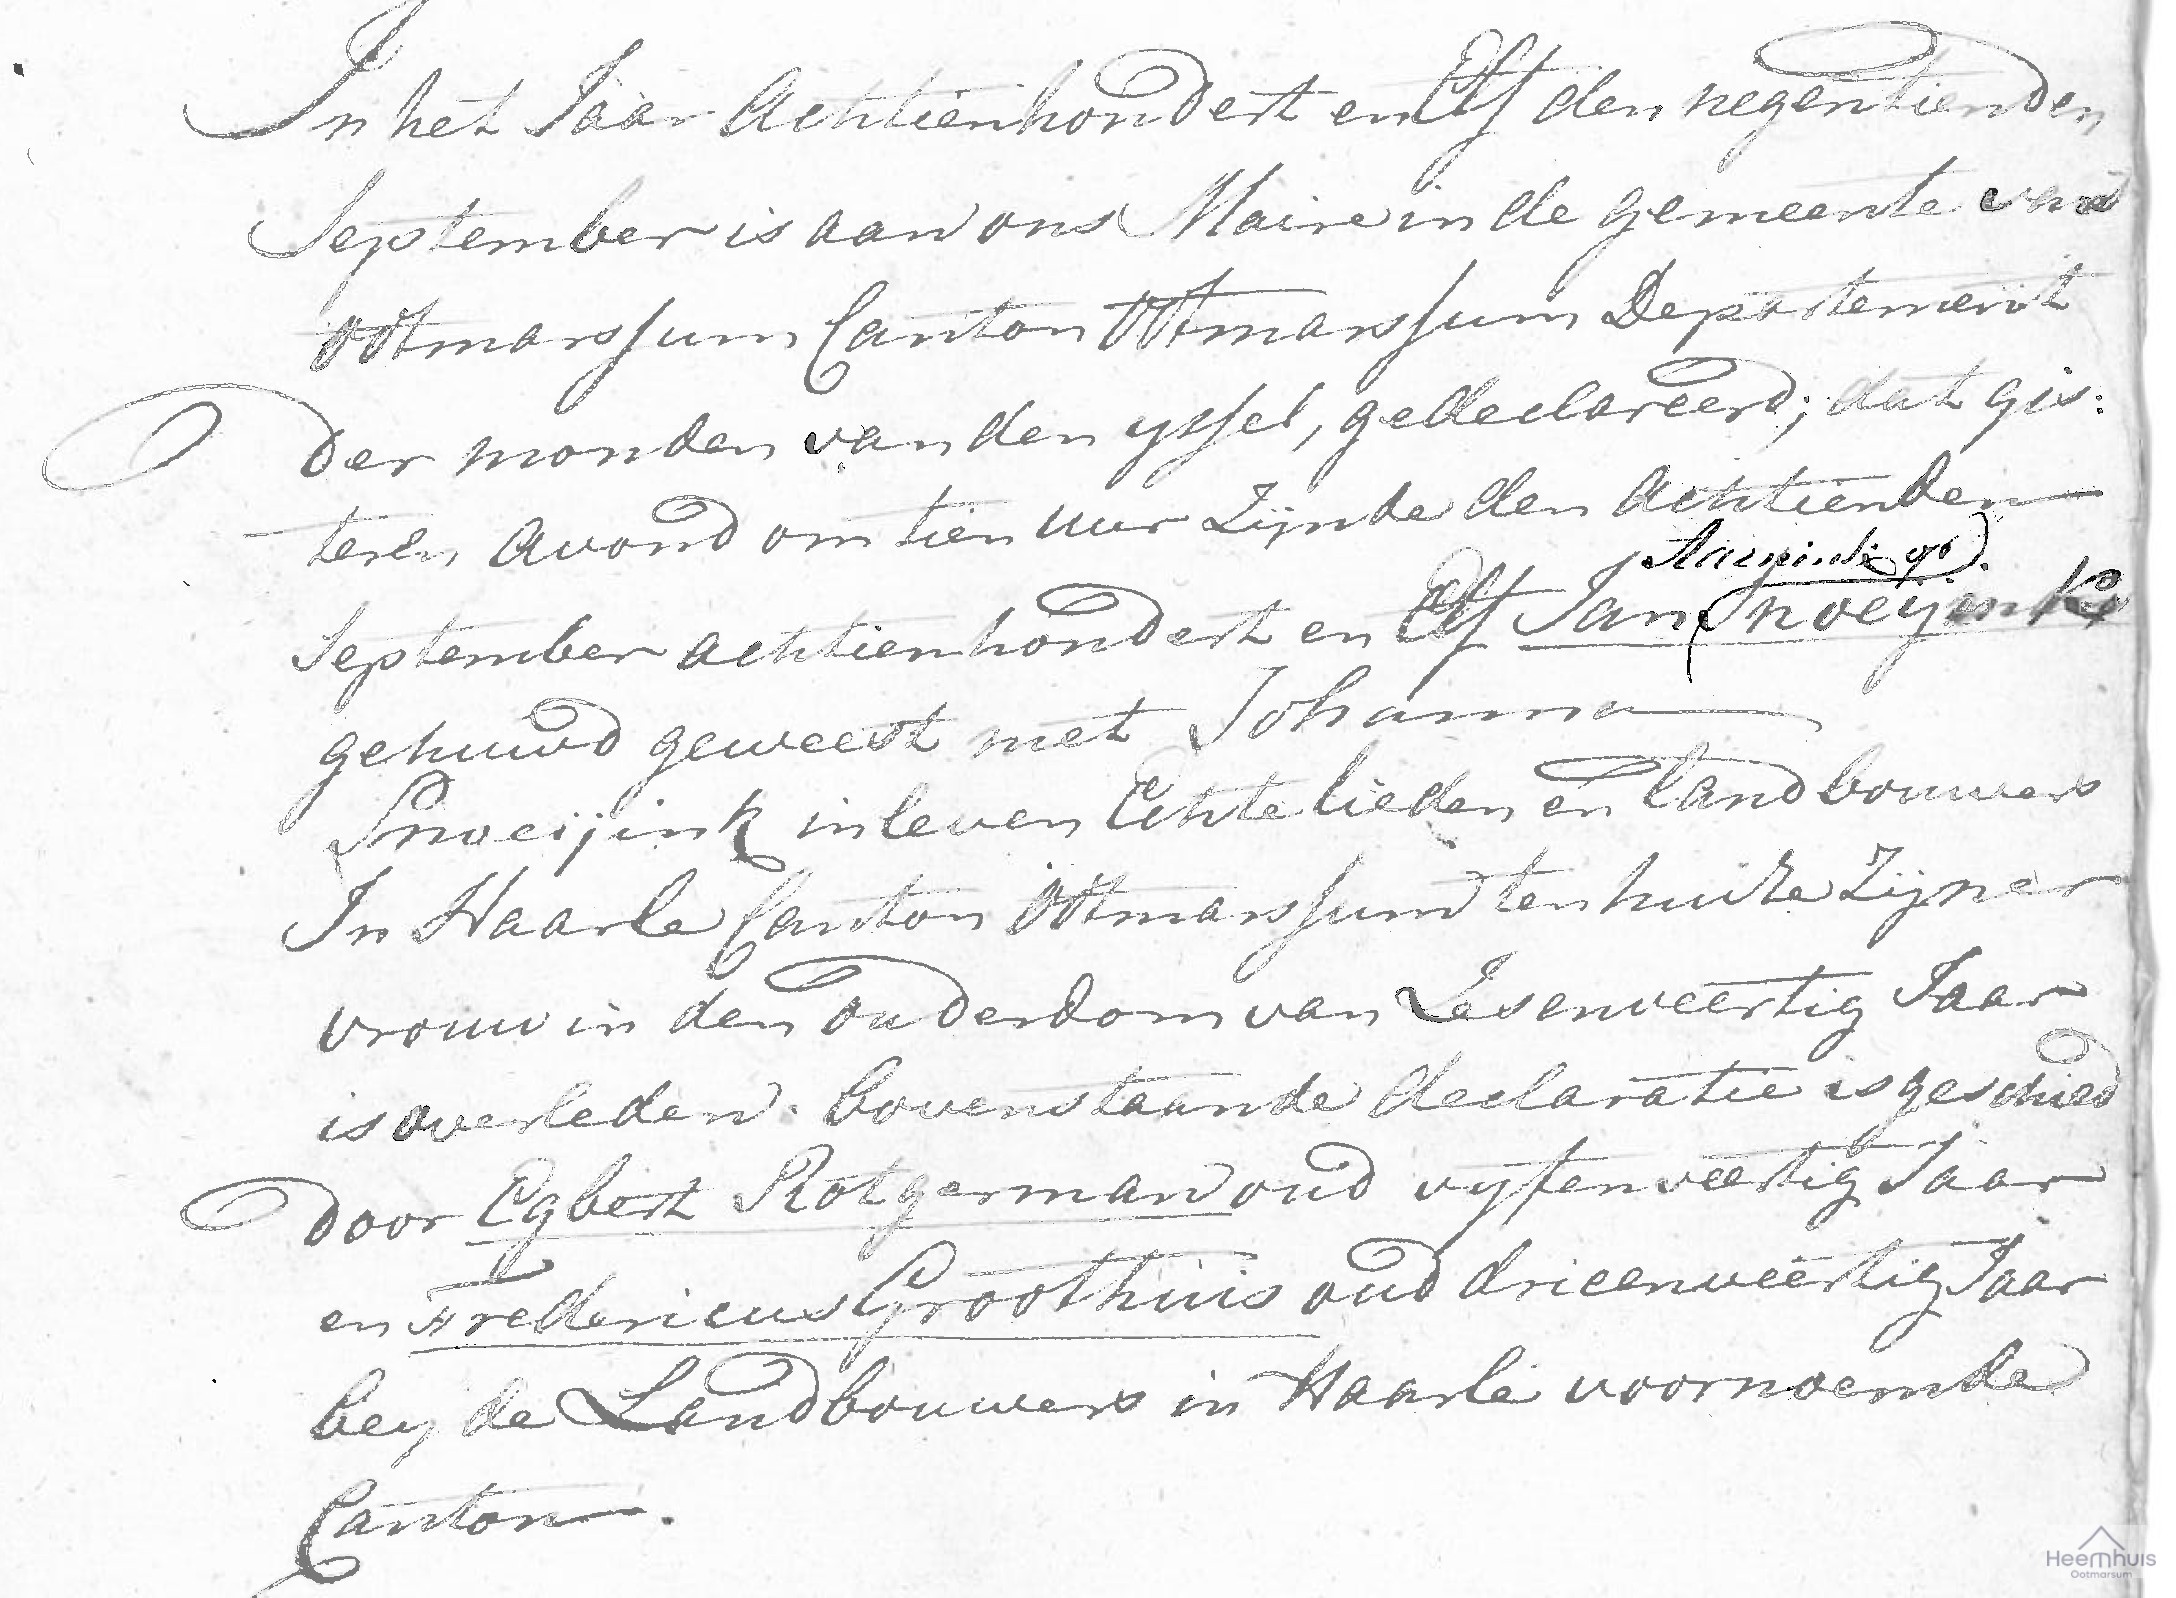 In het Jaar Achtienhondert en Elf den negentienden
September is aan ons Maire in de gemeente van
Ootmarssum Canton Ootmarssum Departement
Der monden van den yssel, gedeclareerd; dat gis:
teren avond om tien uur Zijnde den Achtienden
September achtienhondert en Elf Jan Snoeijink
gehuwd geweest met Johanna
Snoeijink in leven Echtelieden en landbouwers
In Haarle Canton Ootmarssum ten huize Zijner
vrouw in den ouderdom van Zesenveertig Jaar
is overleden. bovenstaande declaratie is geschied
Door Egbert Rotgerman oud vyfenveertig Jaar
en Fredericus Groothuis oud drieenveertig Jaar
bey de Landbouwers in Haarle voornoemde
Canton.
Heemhuis
Ootmarsum